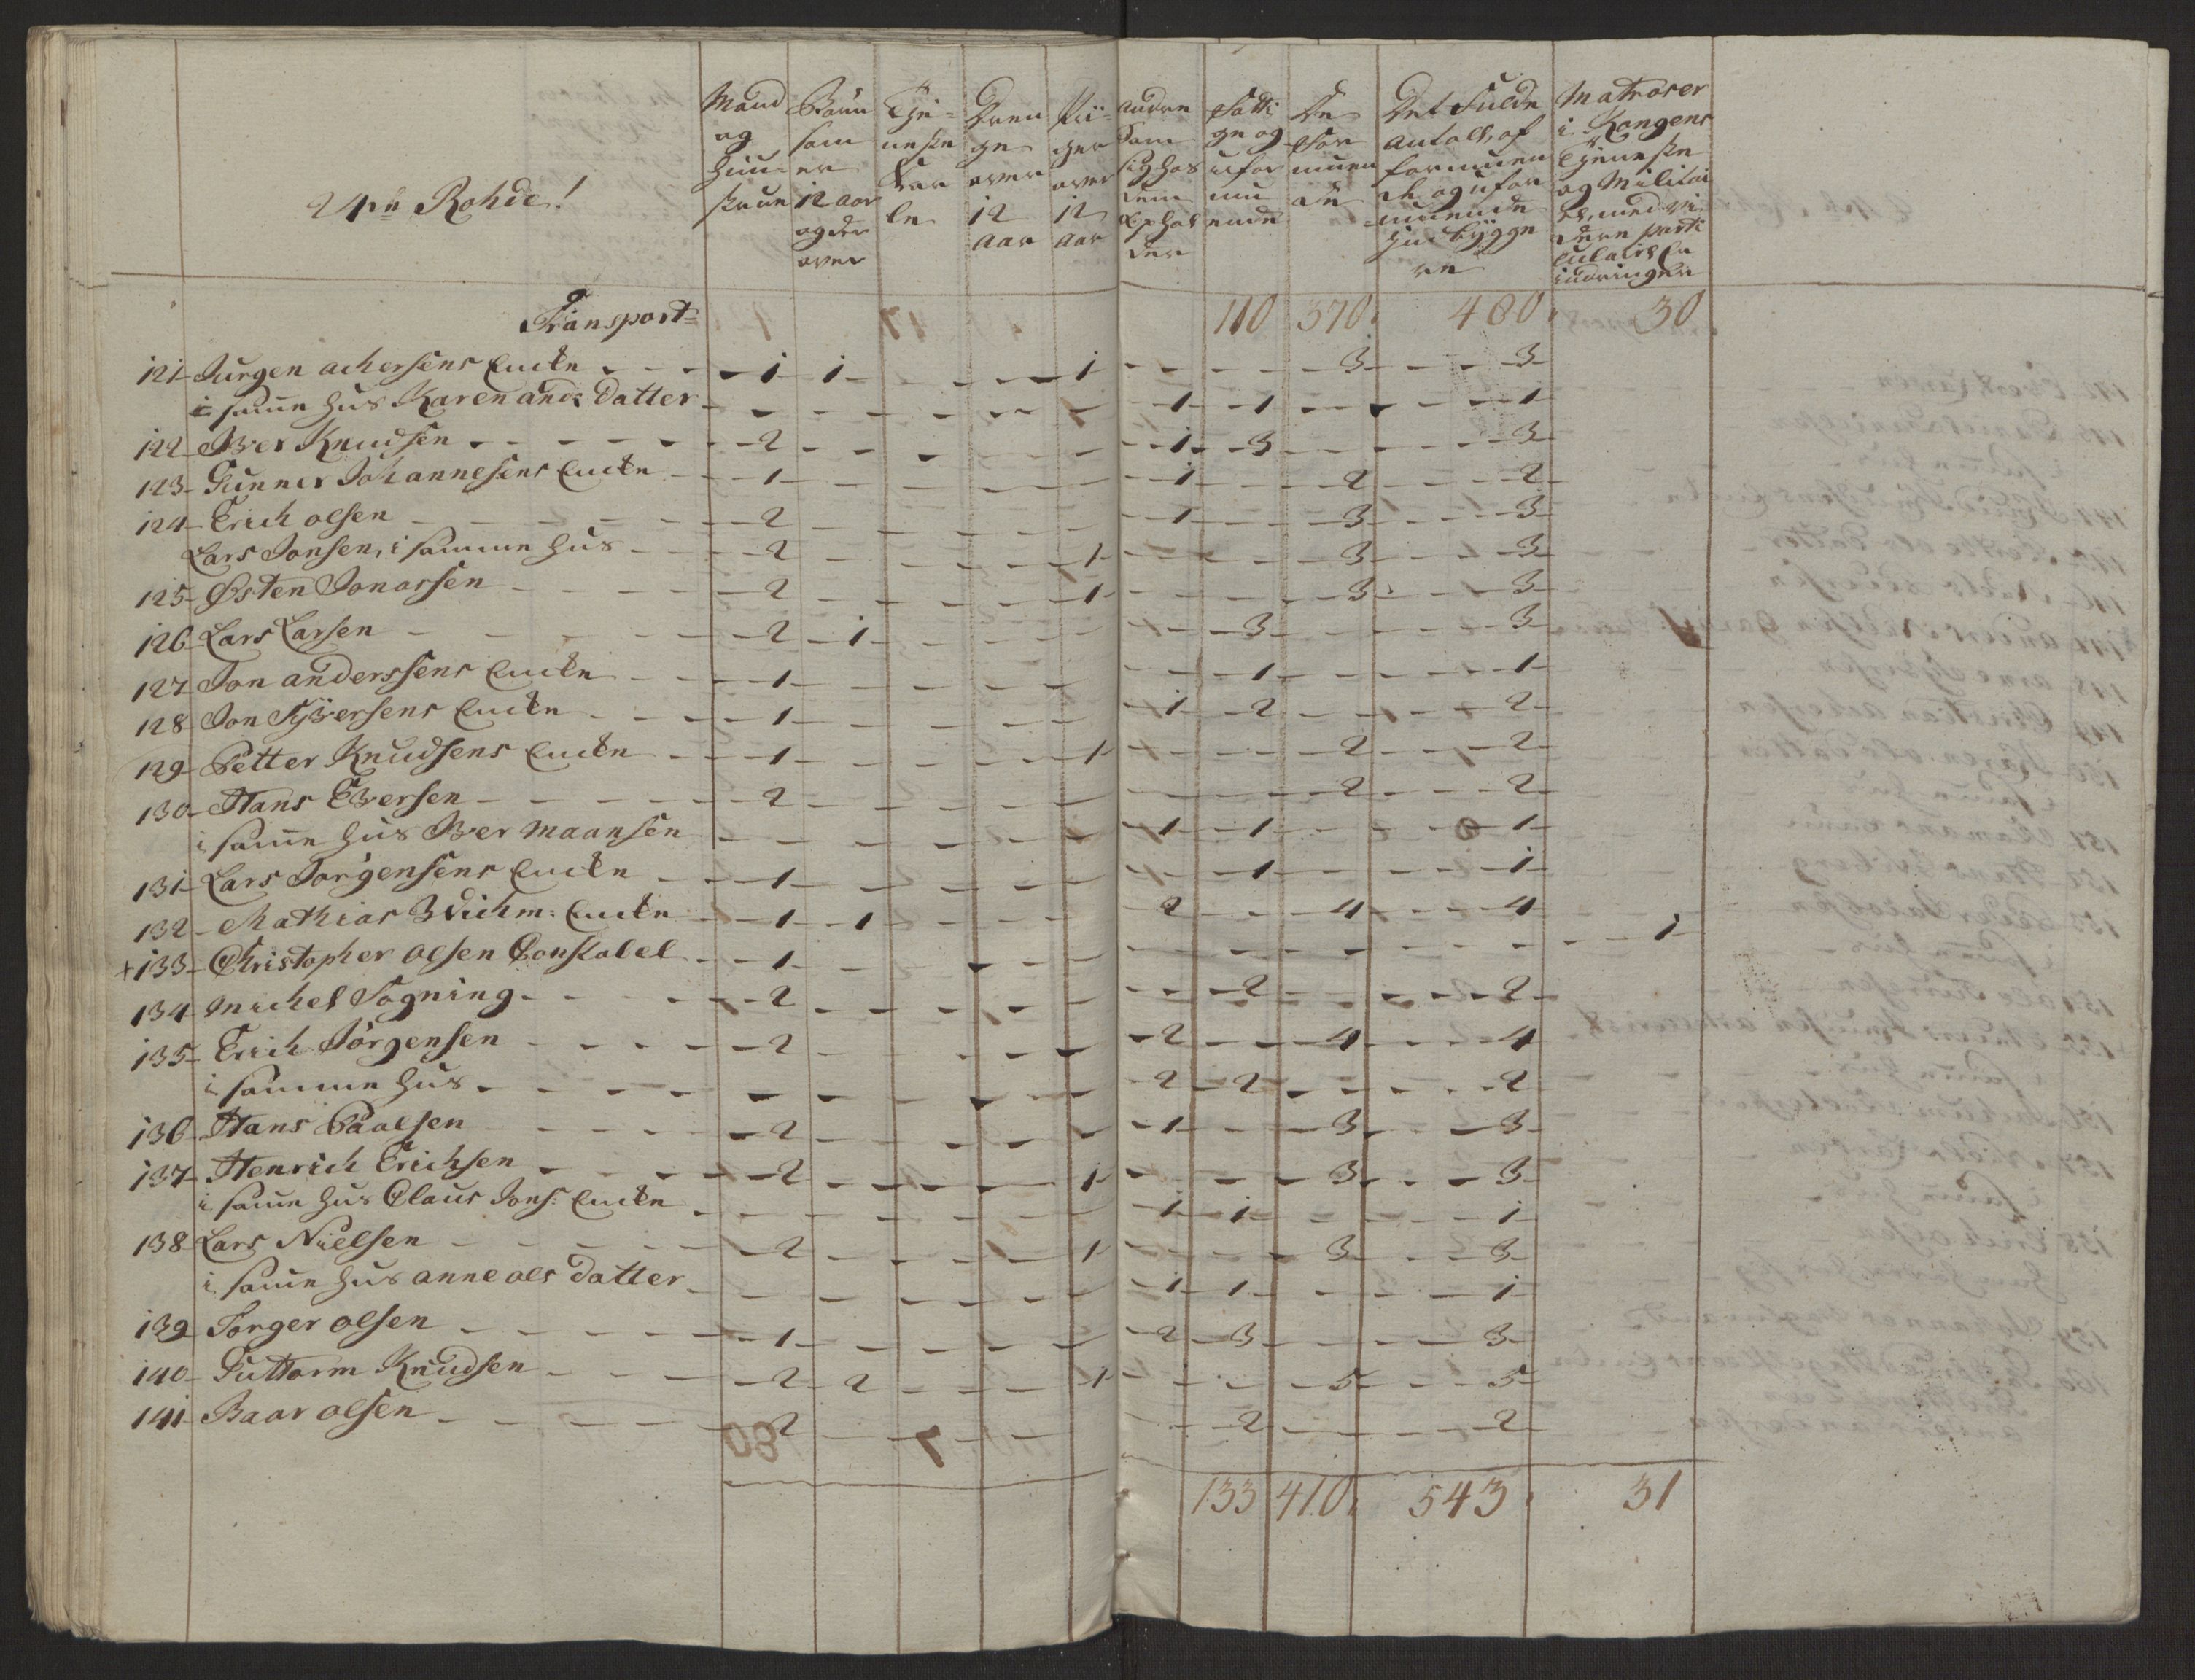 24de Rohde!
Mand og Hustrue
Börn som er 12 aar og der over
Tjeneste Karle
Drenge over 12 aar
Piiger over 12 aar
andre Som sig hos dem opholder
Fattige og uformuende
De formuende
Det fulde antall, af formuende og uformuende Huusbyggere
Matroser i Kongens Tjeneste og Militaire, med videre
Transport 110 370 480 30
121 Jurgen achersens Encke 1 1 1 3 3
i samme Huus Karen and: Datter 1 1 1
122 Iver Knudsen 2 1 3 3
123 Gunner Johannesens Encke 1 1 2 2
124 Erich olsen 2 1 3 3
Lars Jonsen, i samme Huus 2 1 3 3
125 Østen Jonassen 2 1 3 3
126 Lars Larsen 2 1 3 3
127 Jon anderssens Encke 1 1 1
128 Jon Syversens Encke 1 1 2 2
129 Petter Knudsens Encke 1 1 2 2
130 Hans Eversen 2 2 2
i samme Huus Iver Maansen 1 1 1
131 Lars Jorgensens Encke 1 1 1
132 Mathias Wichm: Encke 1 1 2 4 4
+133 Christopher olsen Constabel 1 1
134 Michel Sogning 2 2 2
135 Erich Jörgensen 2 2 4 4
i samme Huus 2 2 2
136 Hans Paalsen 2 1 3 3
137 Henrich Erichsen 2 1 3 3
i samme Huus Claus Jons: Encke 1 1 1
138 Lars Nielsen 2 1 3 3
i samme Huus anne ols Datter 1 1 1
139 Torger olsen 1 2 3 3
140 Guttorm Knudsen 2 2 1 5 5
141 Baar olsen 2 2 2
133 410 543 31